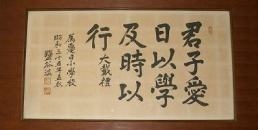 君子愛
日以學
及時以
行 大戴禮
為愛日小學校
昭和三十年
鹽谷溫